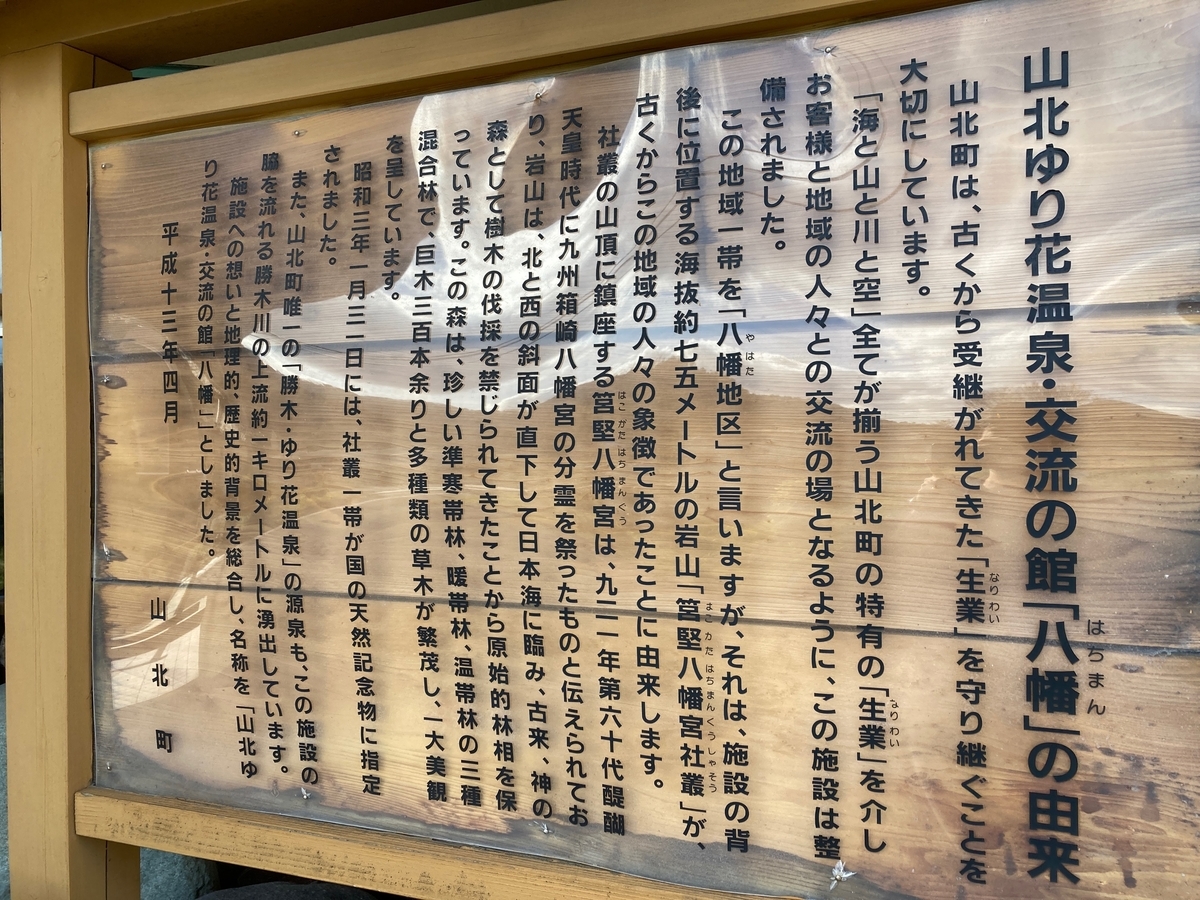 山北ゆり花温泉・交流の館「八幡」の由来
はちまん
山北町は、古くから受継がれてきた「生業」を守り継ぐことを
なりわい
大切にしています。
「海と山と川と空」全てが揃う山北町の特有の「生業」を介し
なりわい
お客様と地域の人々との交流の場となるように、この施設は整
備されました。
この地域一帯を「八幡地区」と言いますが、それは、施設の背
やはた
後に位置する海抜約七五メートルの岩山「筥堅八幡宮社叢」が、
はこがたはちまんぐうしゃそう
古くからこの地域の人々の象徴であったことに由来します。
社叢の山頂に鎮座する筥堅八幡宮は、九二一年第六十代醍醐
はこがたはちまんぐう
天皇時代に九州箱崎八幡宮の分霊を祭ったものと伝えられてお
り、岩山は、北と西の斜面が直下して日本海に臨み、古来、神の
森として樹木の伐採を禁じられてきたことから原始的林相を保
っています。この森は、珍しい準寒帯林、暖帯林、温帯林の三種
混合林で、巨木三百本余りと多種類の草木が繁茂し、一大美観
を呈しています。
昭和三年一月三一日には、社叢一帯が国の天然記念物に指定
されました。
また、山北町唯一の「勝木・ゆり花温泉」の源泉も、この施設の
脇を流れる勝木川の上流約一キロメートルに湧出しています。
施設への想いと地理的、歴史的背景を総合し、名称を「山北ゆ
り花温泉・交流の館「八幡」」としました。
平成十三年四月
山北町